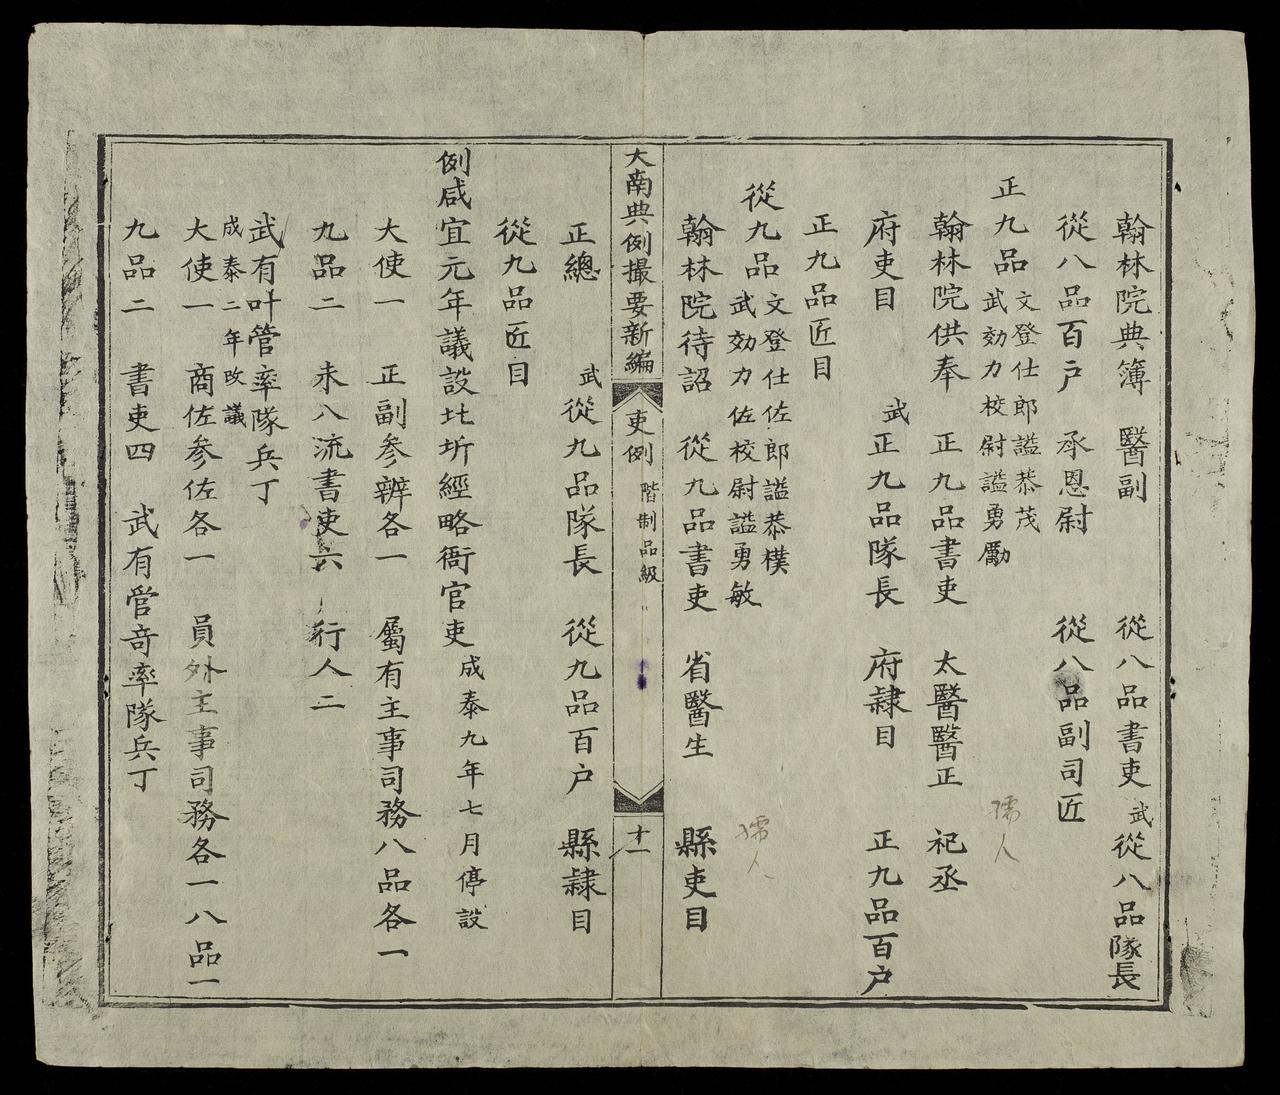 翰林院典簿 醫副 從八品書吏 武從八品隊長
從八品百户 承恩尉 從八品副司匠
正九品 文登仕郎謚恭茂
武効力校尉謚勇勵
孺人
翰林院供奉 正九品書吏 太醫醫正 祀丞
府吏目 武正九品隊長 府隸目 正九品百户
正九品匠目
從九品 文登仕佐郎謚恭樸
武効力佐校尉謚勇敏
孺人
翰林院待詔 從九品書吏 省醫生 縣吏目
大南典例撮要新編 吏例 階制品級 十一
正總 武從九品隊長 從九品百户 縣隸目
從九品匠目
例咸宜元年議設北圻經略衙官吏 成泰九年七月停設
大使一 正副參辦各一 屬有主事司務八品各一
九品二 未八流書吏六 行人二
武有叶管率隊兵丁
成泰二年改議
大使一 商佐參佐各一 員外主事司務各一八品一
九品二 書吏四 武有管奇率隊兵丁